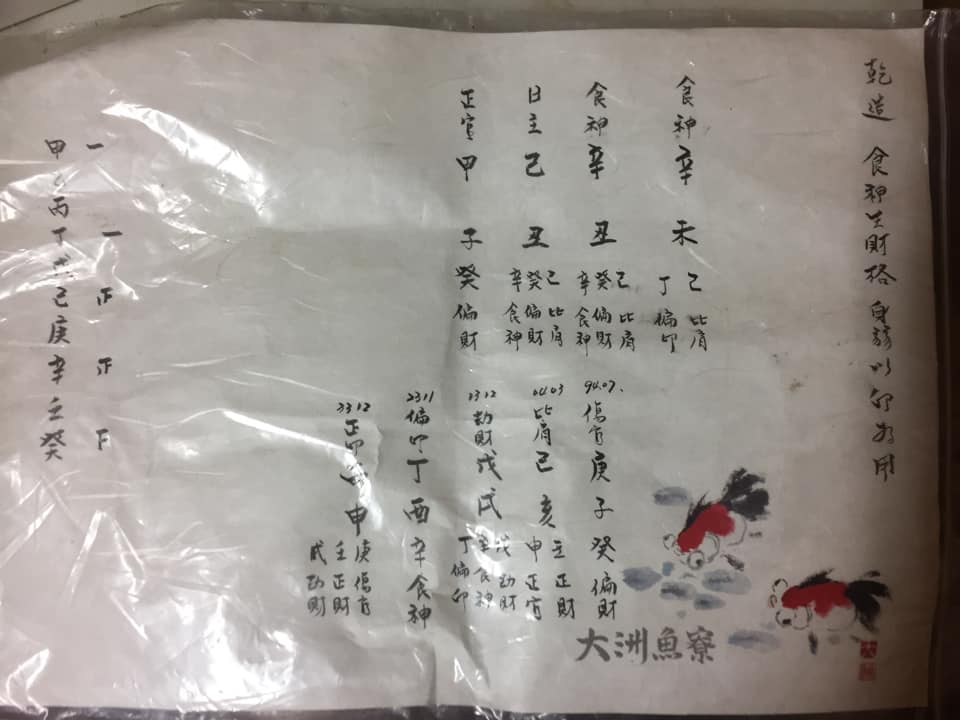 乾造 食神生財格 身弱以印為用
食神 辛 未 己 比肩
丁 偏印
食神 辛 丑 己 比肩
癸 偏財
辛 食神
日主 己 丑 己 比肩
癸 偏財
辛 食神
正官 甲 子 癸 偏財
94.07. 傷官 庚 子 癸 偏財
04.03 比肩 己 亥 壬 正財
甲 正官
1312 劫財 戊 戌 戊 劫財
辛 食神
丁 偏印
2311 偏印 丁 酉 辛 食神
3312 正印 丙 申 庚 傷官
壬 正財
戊 劫財
一 一 正 正 下
甲乙丙丁戊己庚辛壬癸
大洲魚寮